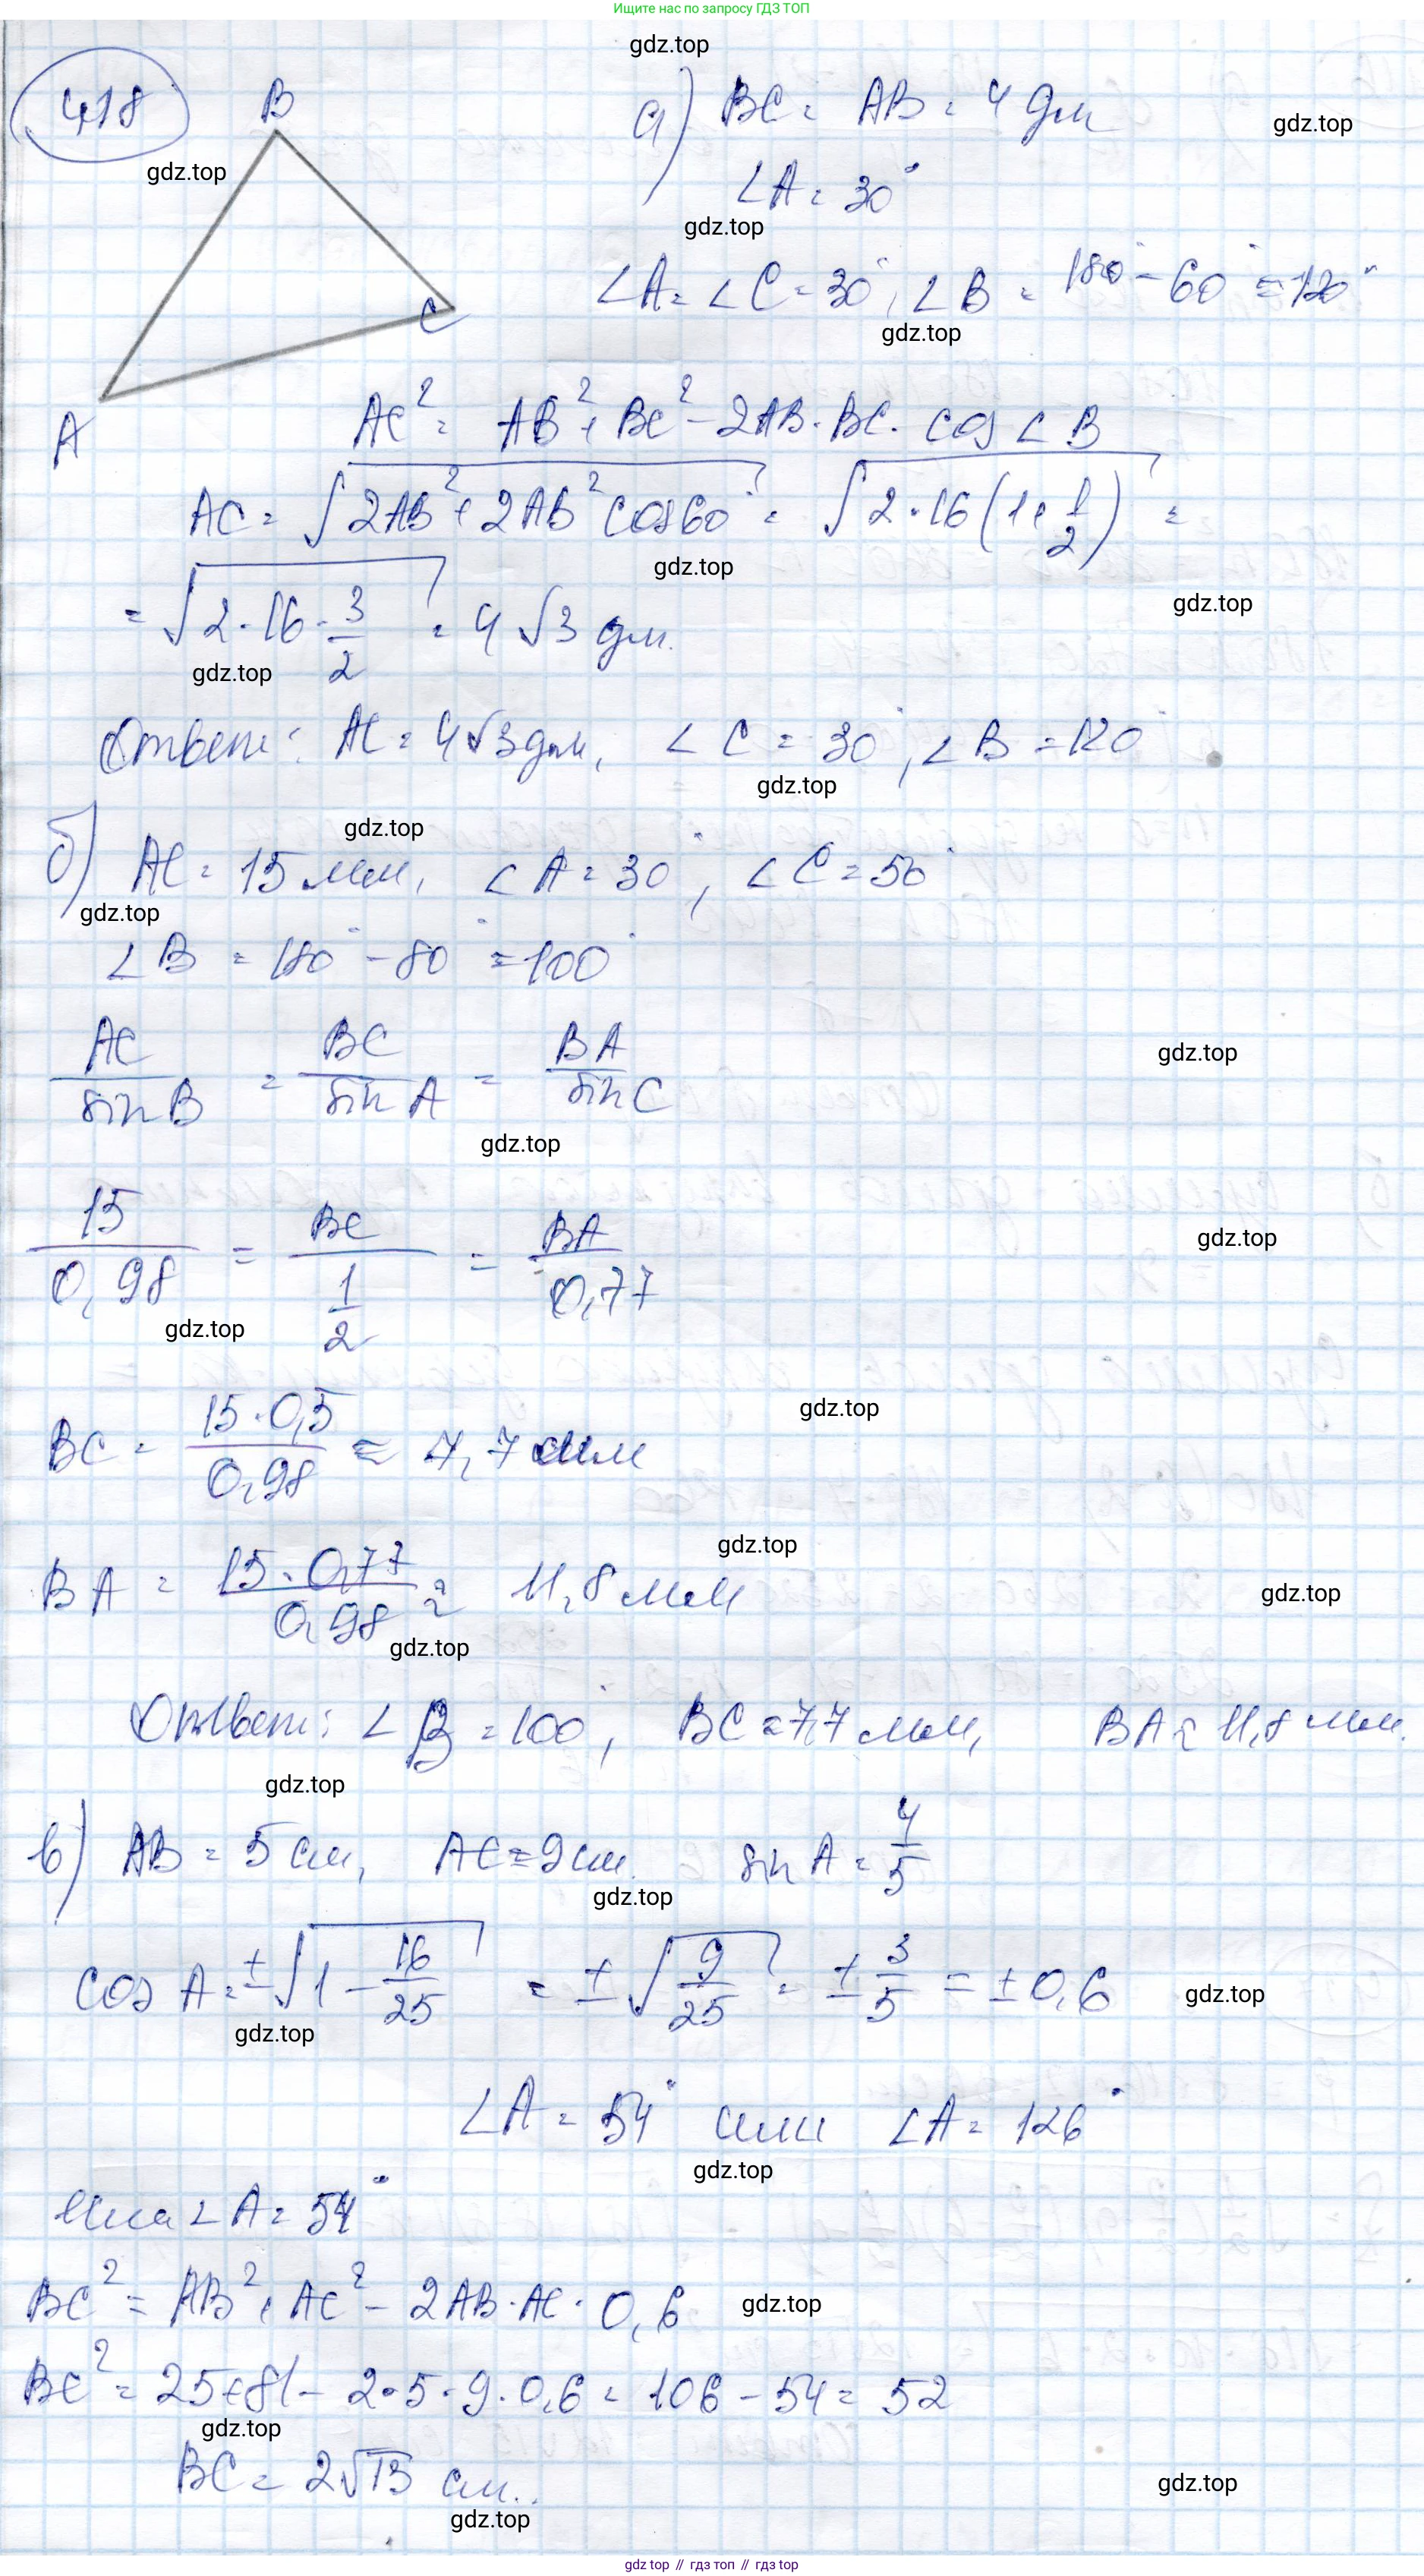 Ищите нас по запросу ГДЗ ТОП
gdz.top
418
B
а) BC = AB = 4 дм
gdz.top
gdz.top
∠A = 30°
gdz.top
∠A = ∠C = 30°, ∠B = 180° - 60° = 120°
C
gdz.top
A
AC² = AB² + BC² - 2AB · BC · cos ∠B
AC = √(2AB² + 2AB² cos60°) = √(2 · 16(1 + 1/2)) =
gdz.top
gdz.top
= √(2 · 16 · 3/2) = 4√3 дм.
gdz.top
Ответ: AC = 4√3 дм, ∠C = 30°, ∠B = 120°
gdz.top
gdz.top
б) AC = 15 мм, ∠A = 30°, ∠C = 50°
gdz.top
∠B = 180° - 80° = 100°
AC/sin B = BC/sin A = BA/sin C
gdz.top
gdz.top
15/0,98 = BC/(1/2) = BA/0,77
gdz.top
gdz.top
BC = 15 · 0,5/0,98 ≈ 7,7 мм
gdz.top
BA = 15 · 0,77/0,98 ≈ 11,8 мм
gdz.top
gdz.top
gdz.top
Ответ: ∠B = 100°, BC ≈ 7,7 мм, BA ≈ 11,8 мм.
gdz.top
в) AB = 5 см, AC = 9 см. sin A = 4/5
gdz.top
cos A = ±√(1 - 16/25) = ±√(9/25) = ± 3/5 = ± 0,6
gdz.top
gdz.top
∠A = 54° или ∠A = 126°
gdz.top
Если ∠A = 54°
BC² = AB² + AC² - 2AB · AC · 0,6
gdz.top
BC² = 25 + 81 - 2 · 5 · 9 · 0,6 = 106 - 54 = 52
gdz.top
BC = 2√13 см.
gdz.top
gdz.top
gdz top // гдз топ // гдз top